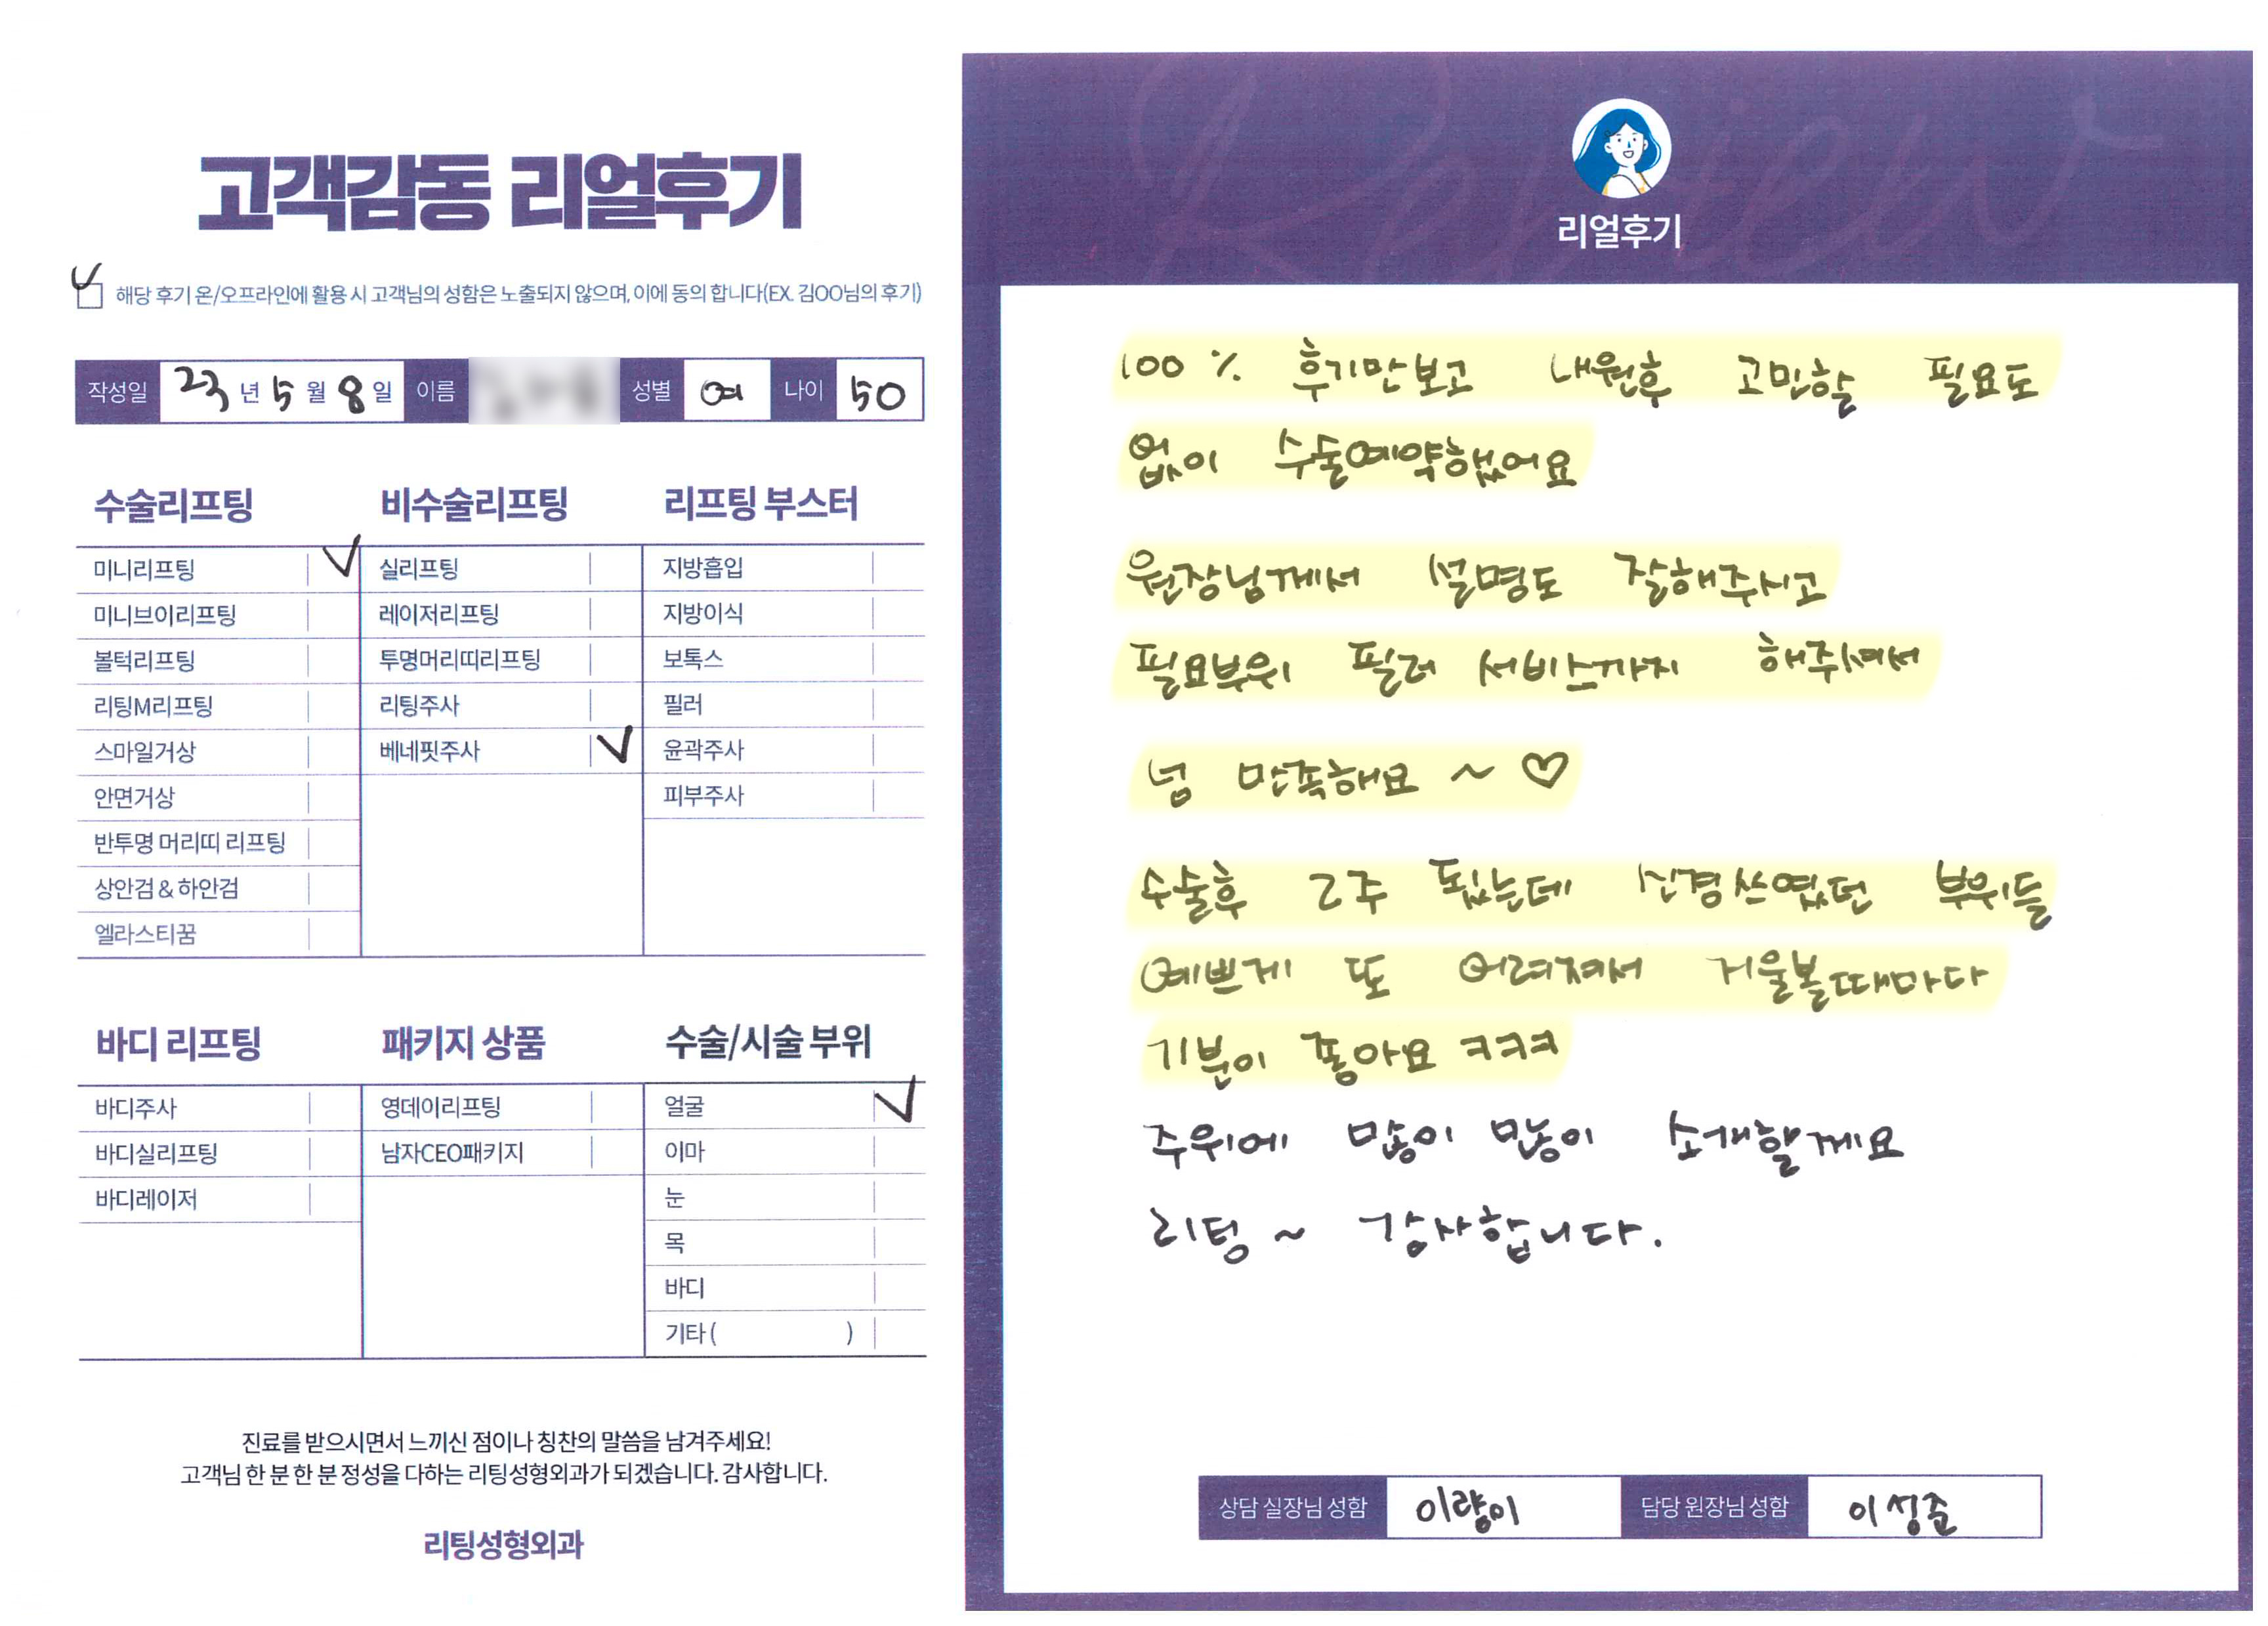 고객감동 리얼후기
해당 후기 온/오프라인에 활용 시 고객님의 성함은 노출되지 않으며, 이에 동의 합니다(EX. 김OO님의 후기)
작성일 23 년 5 월 8 일 이름 성별 여 나이 50
수술리프팅
미니리프팅
미니브이리프팅
볼턱리프팅
리팅M리프팅
스마일거상
안면거상
반투명 머리띠 리프팅
상안검 & 하안검
엘라스티꿈
비수술리프팅
실리프팅
레이저리프팅
투명머리띠리프팅
리팅주사
베네핏주사
리프팅 부스터
지방흡입
지방이식
보톡스
필러
윤곽주사
피부주사
바디 리프팅
바디주사
바디실리프팅
바디레이저
패키지 상품
영데이리프팅
남자CEO패키지
수술/시술 부위
얼굴
이마
눈
목
바디
기타 ( )
진료를 받으시면서 느끼신 점이나 칭찬의 말씀을 남겨주세요!
고객님 한 분 한 분 정성을 다하는 리팅성형외과가 되겠습니다. 감사합니다.
리팅성형외과
Review
리얼후기
100 % 후기만보고 내원후 고민할 필요도
없이 수술예약했어요
원장님께서 설명도 잘해주시고
필요부위 필러 서비스까지 해주셔서
넘 만족해요 ~ ♡
수술후 2주 됬는데 신경쓰였던 부위들
예쁘게 또 어려져서 거울볼때마다
기분이 좋아요 ㅋㅋㅋ
주위에 많이 많이 소개할께요
리팅 ~ 감사합니다.
상담 실장님 성함 이랑이 담당 원장님 성함 이성준